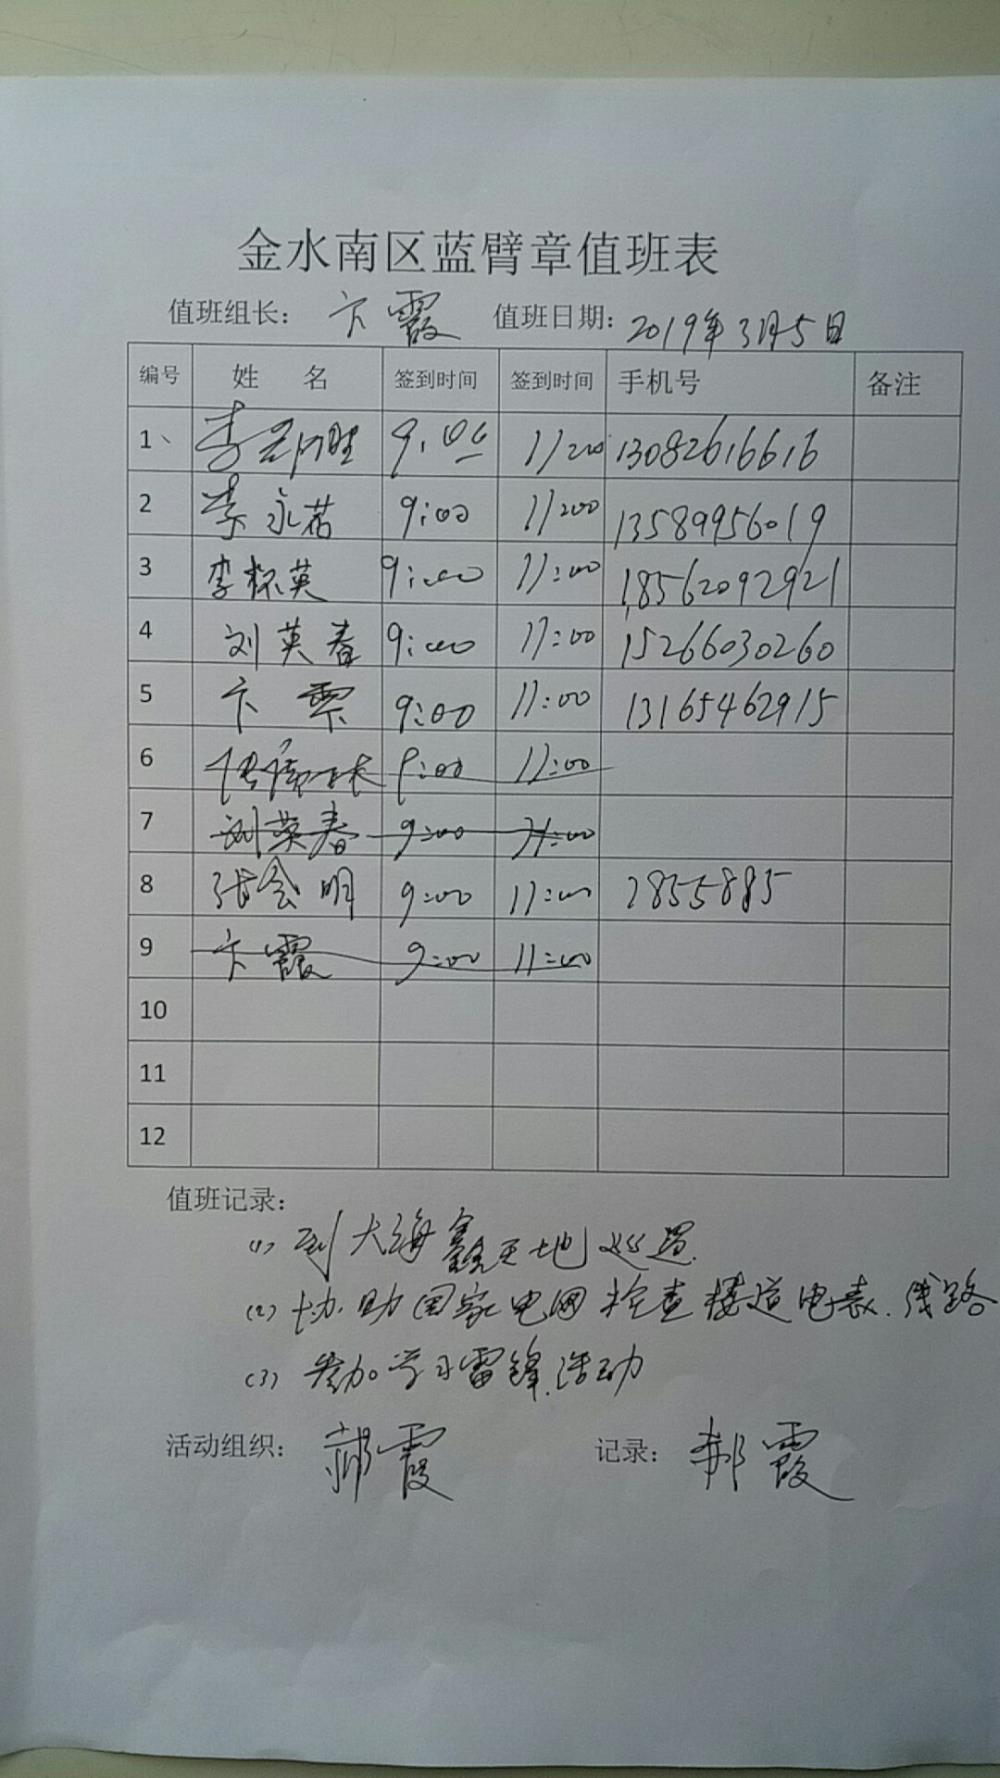 金水南区蓝臂章值班表
值班组长： 卞霞 值班日期：2019年3月5日
编号 姓 名 签到时间 签到时间 手机号 备注
1、 李 胜 9:00 11:00 13082616616
2 李永茗 9:00 11:00 13589956019
3 李怀英 9:00 11:00 18562092921
4 刘英春 9:00 11:00 15266030260
5 卞霞 9:00 11:00 13165462915
6 9:00 11:00
7 刘英春 9:00 11:00
8 张会明 9:00 11:00 2855885
9 卞霞 9:00 11:00
10
11
12
值班记录：
(1) 到大海鑫天地巡逻.
(2) 协助国家电网检查楼道电表.线路
(3) 参加学习雷锋活动
活动组织： 郝霞 记录： 郝霞